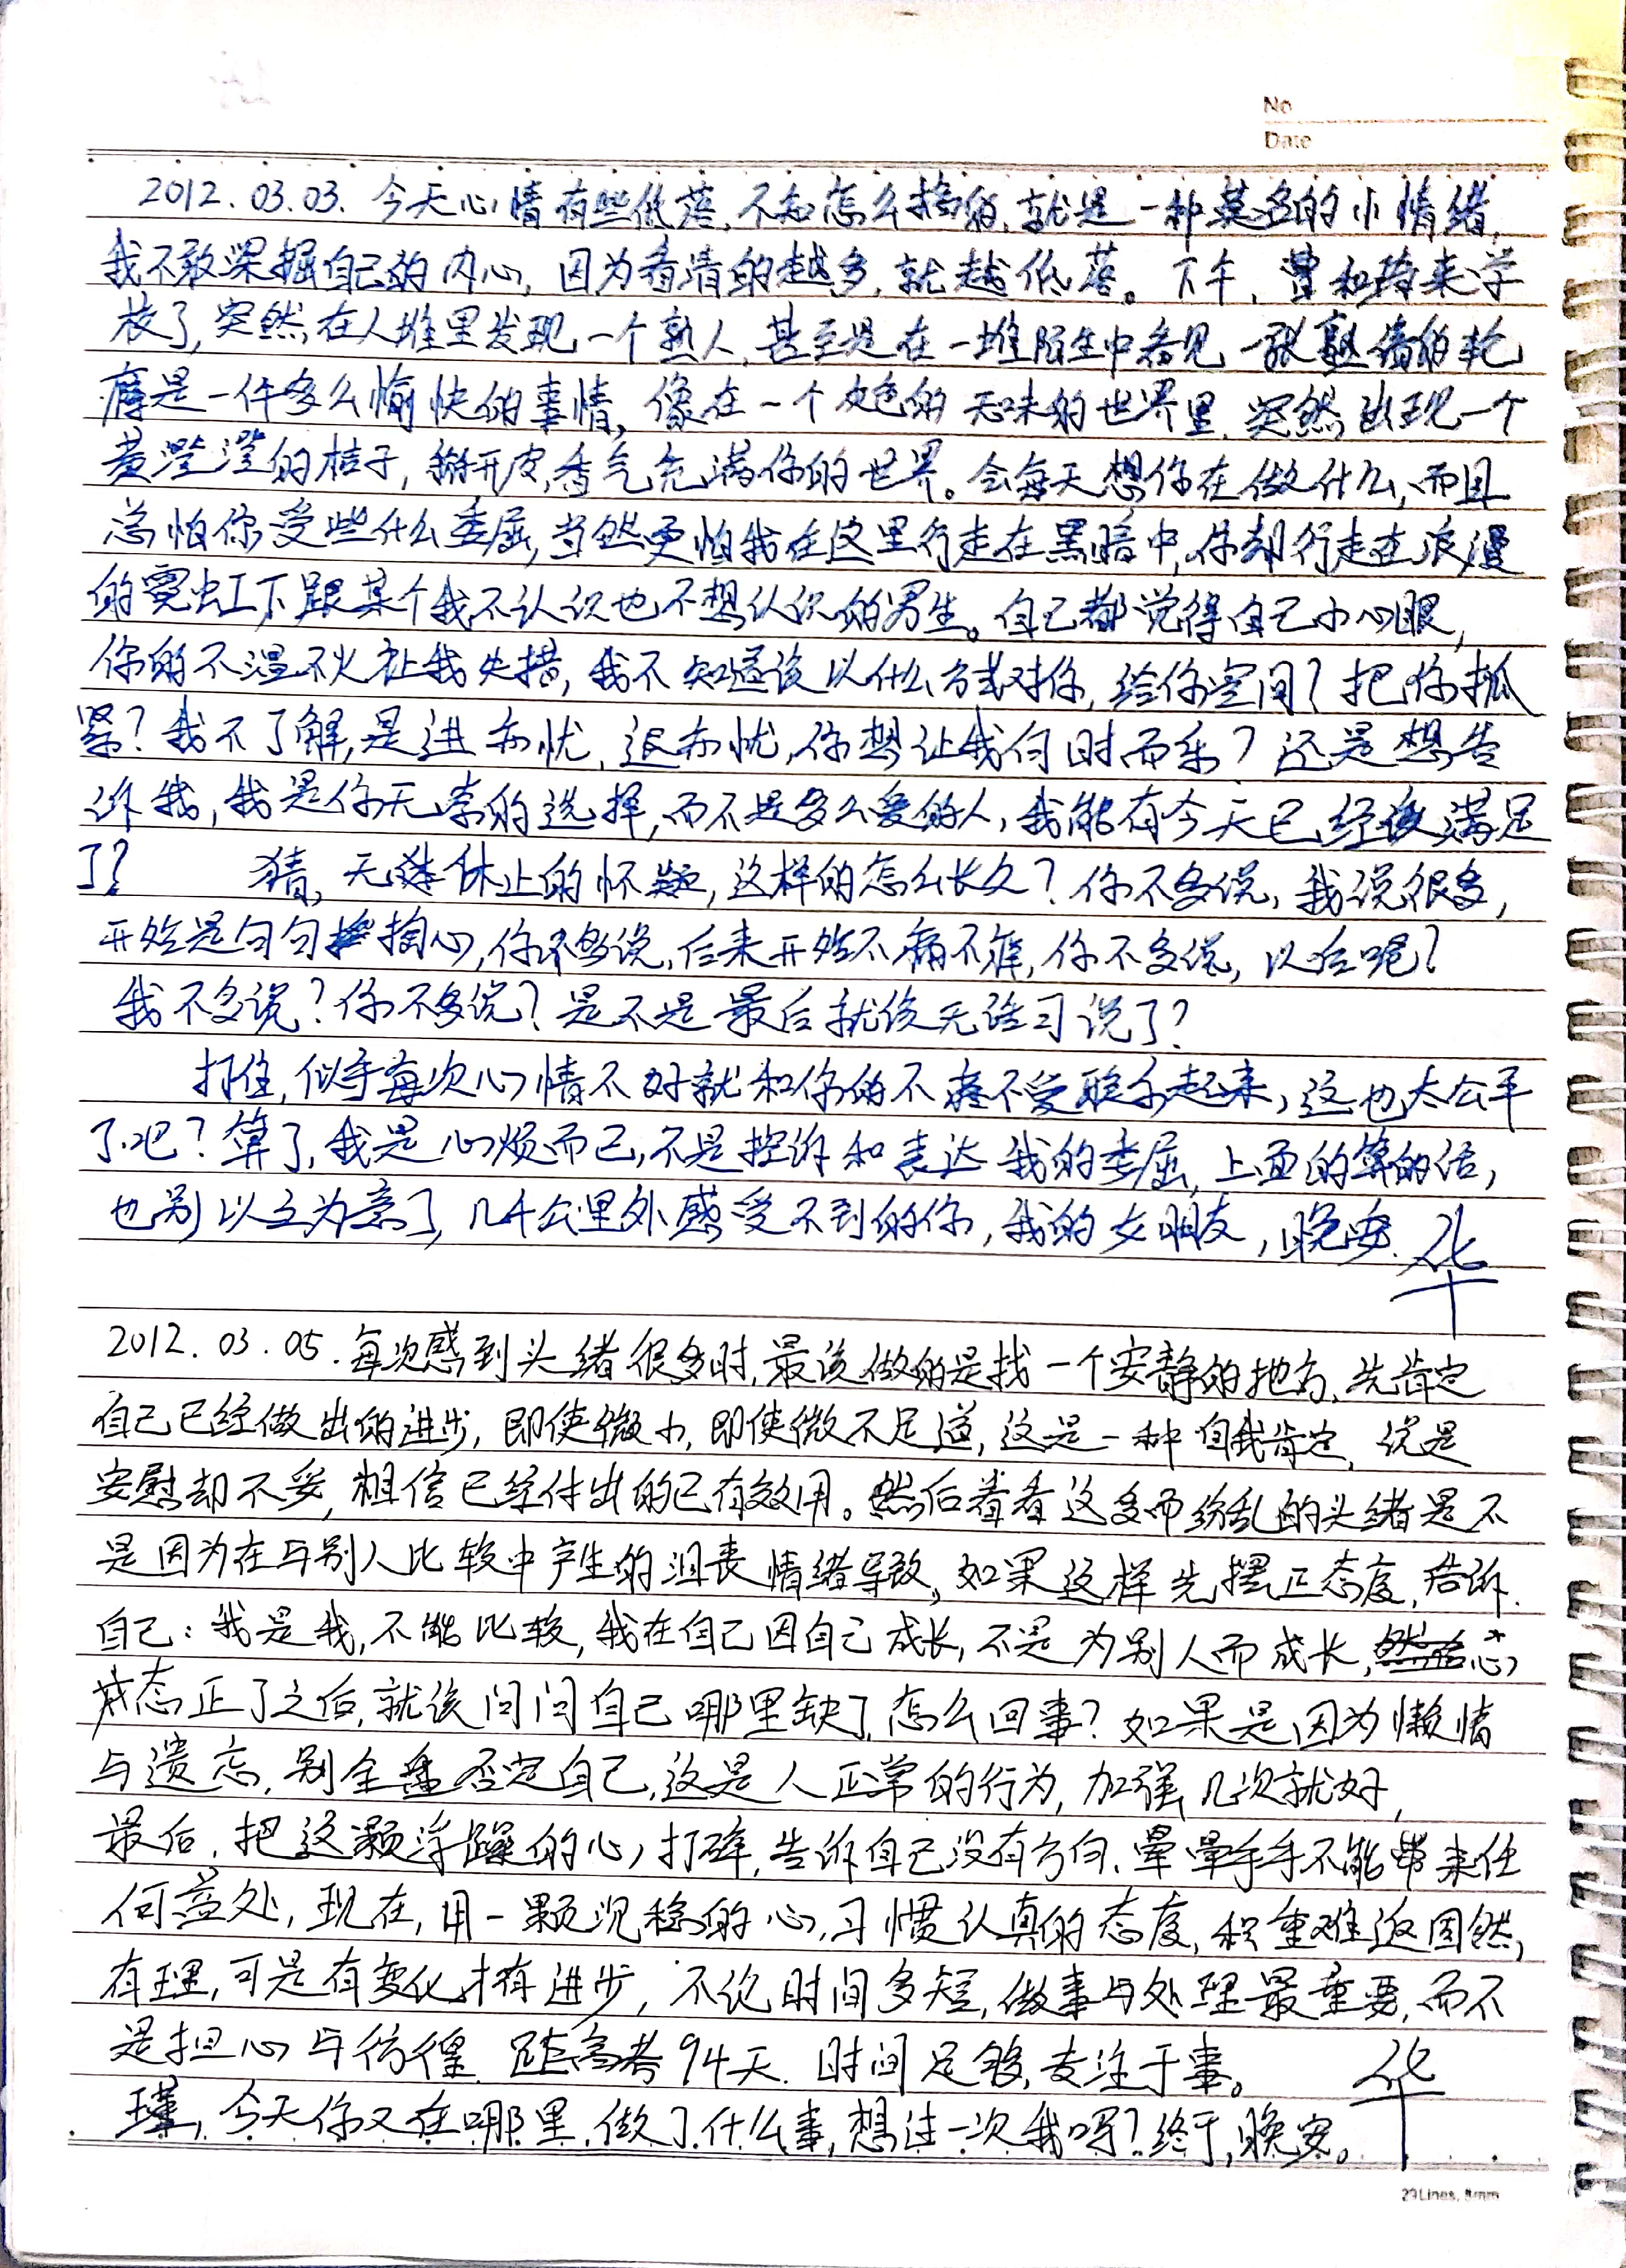 No
Date
2012.03.03. 今天心情有些低落,不知怎么搞的,就是一种莫名的小情绪,
我不敢深掘自己的内心,因为看清的越多,就越低落。下午,曹和玲来学
校了,突然在人堆里发现一个熟人,甚至是在一堆陌生中看见一张熟悉的轮
廓是一件多么愉快的事情,像在一个灰色的无味的世界里,突然出现一个
黄澄澄的桔子,掰开皮,香气充满你的世界。会每天想你在做什么,而且
总怕你受些什么委屈,当然更怕我在这里行走在黑暗中,你却行走在浪漫
的霓虹下跟某个我不认识也不想认识的男生。自己都觉得自己小心眼,
你的不温不火让我失措,我不知道该以什么方式对你,给你空间?把你抓
紧?我不了解,是进亦忧,退亦忧,你想让我何时而乐?还是想告
诉我,我是你无奈的选择,而不是多么爱的人,我能有今天已经该满足
了? 猜,无休止的怀疑,这样的怎么长久?你不多说,我说很多,
开始是句句掏心,你不多说,后来开始不痛不痒,你不多说,以后呢?
我不多说?你不多说?是不是最后就该无话可说了?
打住,似乎每次心情不好就和你的不疼不爱联系起来,这也太公平
了吧?算了,我是心烦而已,不是控诉和表达我的委屈,上面的算的话,
也别以之为意了,几千公里外感受不到的你,我的女朋友,晚安. 华
2012.03.05.每次感到头绪很多时,最该做的是找一个安静的地方,先肯定
自己已经做出的进步,即使微小,即使微不足道,这是一种自我肯定,说是
安慰却不妥,相信已经付出的已有效用。然后看看这多而纷乱的头绪是不
是因为在与别人比较中产生的沮丧情绪导致,如果这样先摆正态度,告诉
自己:我是我,不能比较,我在自己因自己成长,不是为别人而成长,心
态正了之后,就该问问自己哪里缺了,怎么回事?如果是因为懒惰
与遗忘,别全盘否定自己,这是人正常的行为,加强几次就好,
最后,把这颗浮躁的心打碎,告诉自己没有方向、晕晕乎乎不能带来任
何益处,现在,用一颗沉稳的心,习惯认真的态度,积重难返固然
有理,可是有变化才有进步,不论时间多短,做事与处理最重要,而不
是担心与彷徨.距高考94天.时间足够,专注于事。 华
瑾,今天你又在哪里,做了什么事,想过一次我吗?终于,晚安。
29Lines, 8mm